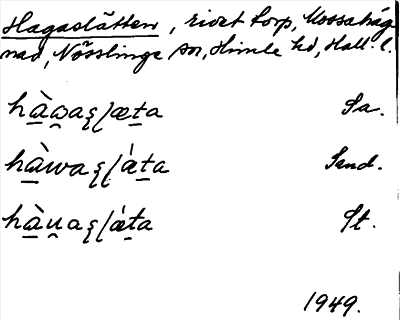 Hagaslätten, rivet torp, Mossahäg
nad, Nösslinge sn, Himle hd, Hall. l.
hàwaʂɭæta Sa.
hàwaʂɭǽta Sand.
hàu̯aʂɭǽta St.
1949.